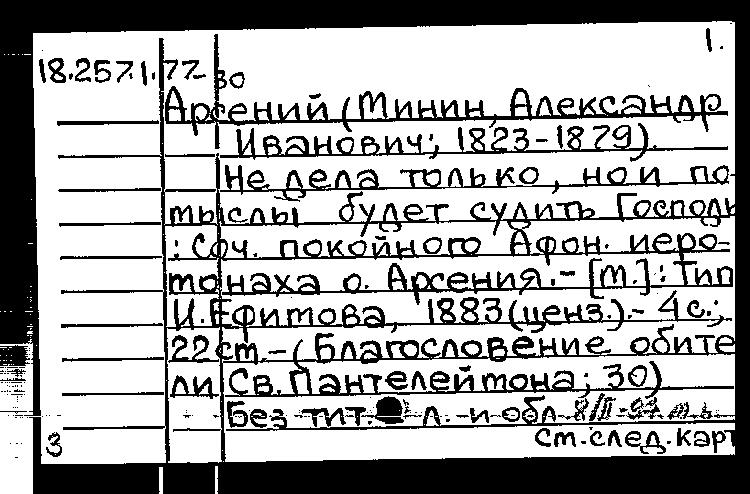 1.
18.257.1.77-30
Арсений (Минин, Александр
Иванович; 1823-1879).
Не дела только, но и по-
мыслы будет судить Господь
: Соч. покойного Афон. иеро-
монаха о. Арсения.- [М.]: Тип
И. Ефимова, 1883 (ценз.).- 4 с.;
22 см.-(Благословение обите
ли Св. Пантелеймона; 30)
Без тит. л. и обл.
3 см. след. карт